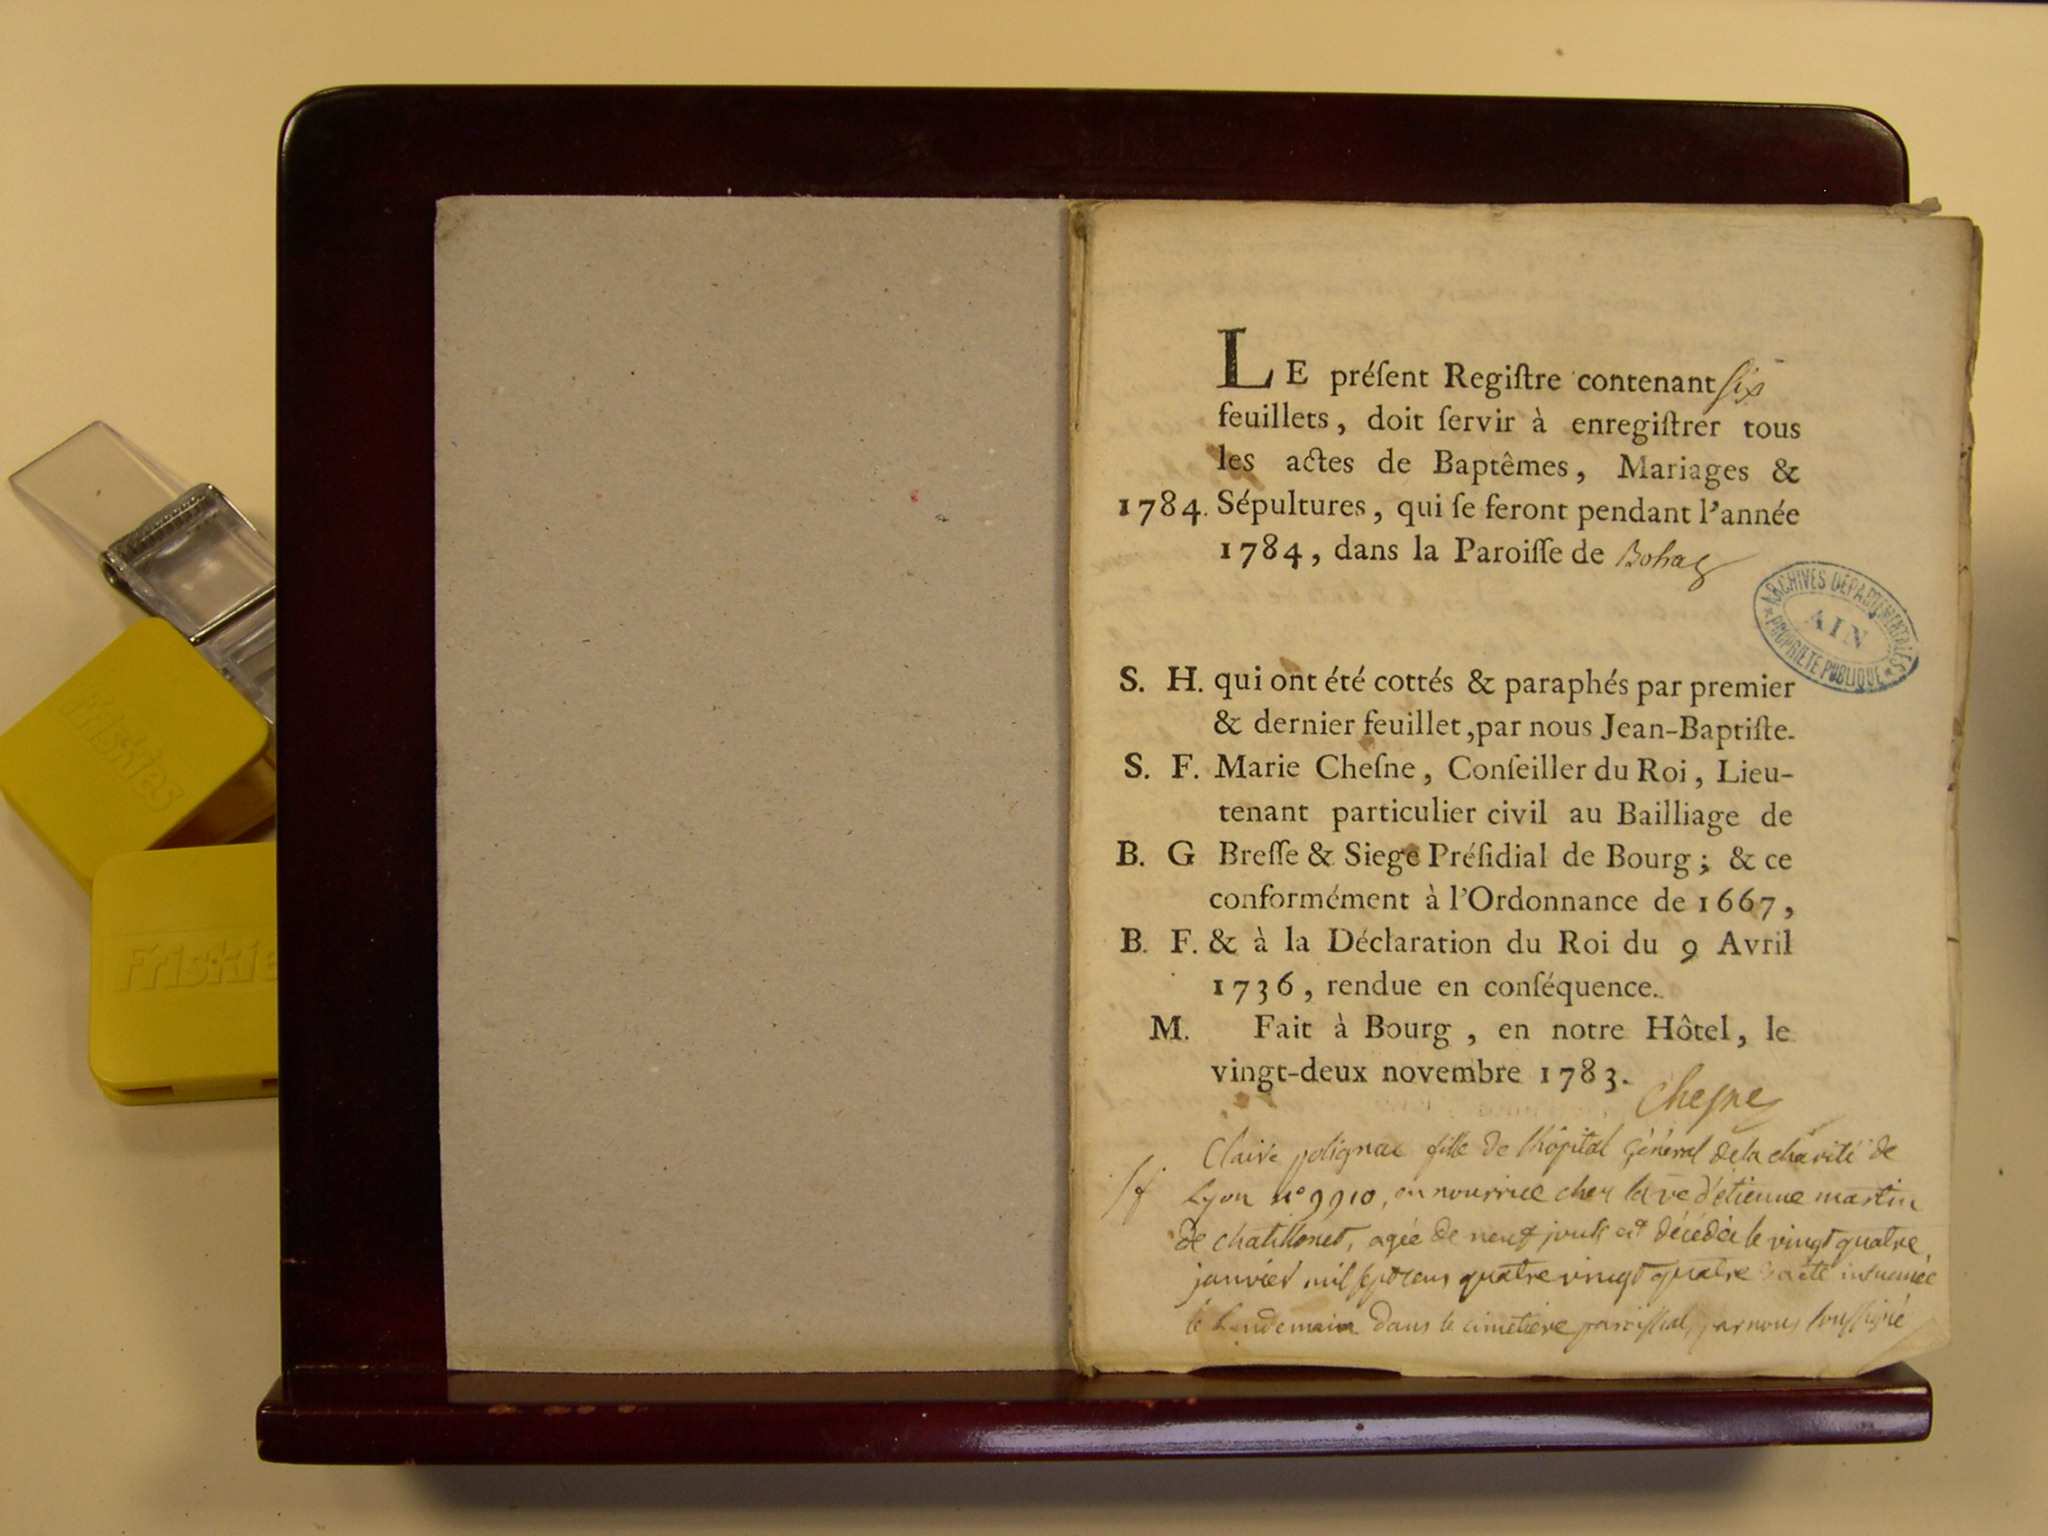 LE préſent Regiſtre contenant six
feuillets, doit ſervir à enregiſtrer tous
les actes de Baptêmes, Mariages &
1784. Sépultures, qui ſe feront pendant l'année
1784, dans la Paroiſſe de Bohas
ARCHIVES DÉPARTEMENTALES
AIN
PROPRIÉTÉ PUBLIQUE
S. H. qui ont été cottés & paraphés par premier
& dernier feuillet, par nous Jean-Baptiſte-
S. F. Marie Cheſne, Conſeiller du Roi, Lieu-
tenant particulier civil au Bailliage de
B. G Breſſe & Siege Préſidial de Bourg; & ce
conformément à l'Ordonnance de 1667,
B. F. & à la Déclaration du Roi du 9 Avril
1736, rendue en conſéquence.
M. Fait à Bourg, en notre Hôtel, le
vingt-deux novembre 1783.
Chesne
Claire polignac fille de l'hôpital Général de la charité de
Sf Lyon n° 9910, en nourrice chez la ve d'étienne martin
de chatillonet, agée de neuf jours est décédée le vingt quatre
janvier mil sept cens quatre vingt quatre a été inhumée
le Lendemain dans le cimetière paroissial, par nous soussigné
Friskies
Friskie